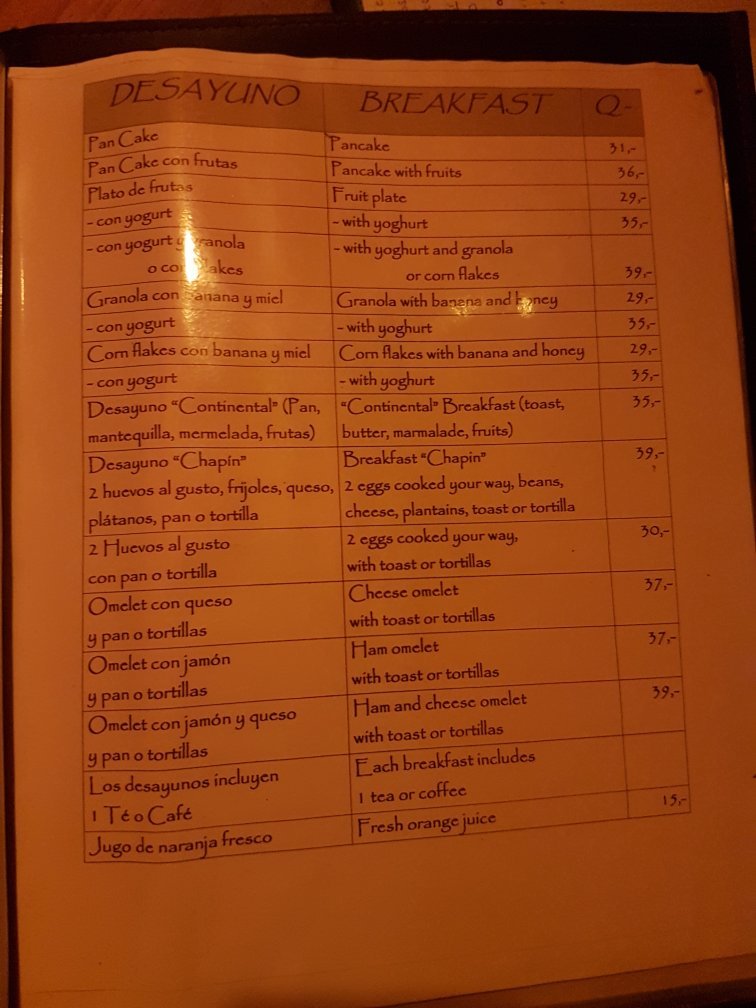 DESAYUNO BREAKFAST Q-
Pan Cake Pancake 31,-
Pan Cake con frutas Pancake with fruits 36,-
Plato de frutas Fruit plate 29,-
- con yogurt - with yoghurt 35,-
- con yogurt y granola - with yoghurt and granola
o corn flakes or corn flakes 39,-
Granola con banana y miel Granola with banana and honey 29,-
- con yogurt - with yoghurt 35,-
Corn flakes con banana y miel Corn flakes with banana and honey 29,-
- con yogurt - with yoghurt 35,-
Desayuno "Continental" (Pan, "Continental" Breakfast (toast, 35,-
mantequilla, mermelada, frutas) butter, marmalade, fruits)
Desayuno "Chapín" Breakfast "Chapin" 39,-
2 huevos al gusto, frijoles, queso, 2 eggs cooked your way, beans,
plátanos, pan o tortilla cheese, plantains, toast or tortilla
2 Huevos al gusto 2 eggs cooked your way, 30,-
con pan o tortilla with toast or tortillas
Omelet con queso Cheese omelet 37,-
y pan o tortillas with toast or tortillas
Omelet con jamón Ham omelet 37,-
y pan o tortillas with toast or tortillas
Omelet con jamón y queso Ham and cheese omelet 39,-
y pan o tortillas with toast or tortillas
Los desayunos incluyen Each breakfast includes
1 Té o Café 1 tea or coffee
Jugo de naranja fresco Fresh orange juice 15,-